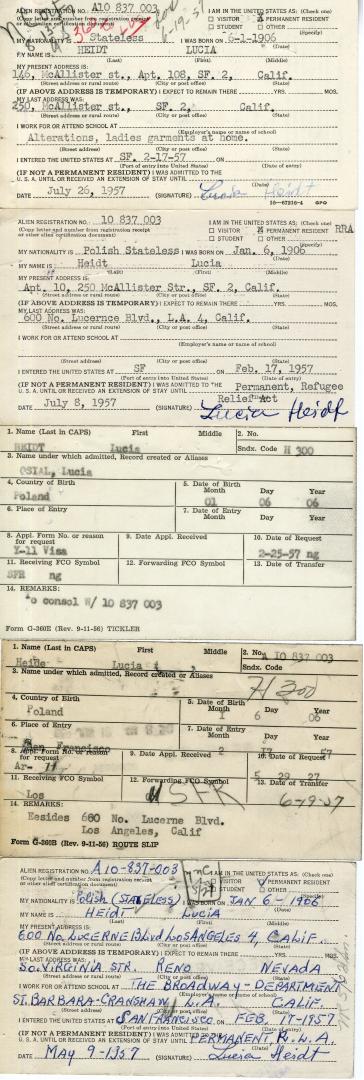 ALIEN REGISTRATION NO. A10 837 003 I AM IN THE UNITED STATES AS: (Check one)
(Copy letter and number from registration receipt VISITOR X PERMANENT RESIDENT
or other alien certification document) STUDENT OTHER
MY NATIONALITY IS Stateless I WAS BORN ON 6-1-1906 (Specify)
(Date)
MY NAME IS HEIDT LUCIA
(Last) (First) (Middle)
MY PRESENT ADDRESS IS:
146, McAllister st., Apt. 108, SF. 2, Calif.
(Street address or rural route) (City or post office) (State)
(IF ABOVE ADDRESS IS TEMPORARY) I EXPECT TO REMAIN THERE YRS. MOS.
MY LAST ADDRESS WAS:
250, McAllister st., SF. 2, Calif.
(Street address or rural route) (City or post office) (State)
I WORK FOR OR ATTEND SCHOOL AT
(Employer's name or name of school)
Alterations, ladies garments at home.
(Street address) (City or post office) (State)
I ENTERED THE UNITED STATES AT SF. 2-17-57 ON
(Port of entry into United States) (Date of entry)
(IF NOT A PERMANENT RESIDENT) I WAS ADMITTED TO THE
U. S. UNTIL OR RECEIVED AN EXTENSION OF STAY UNTIL
DATE July 26, 1957 (SIGNATURE) Lucia Heidt
GPO
ALIEN REGISTRATION NO. 10 837 003 I AM IN THE UNITED STATES AS: (Check one)
(Copy letter and number from registration receipt VISITOR X PERMANENT RESIDENT RRA
or other alien certification document) STUDENT OTHER
(Specify)
MY NATIONALITY IS Polish Stateless I WAS BORN ON Jan. 6, 1906
(Date)
MY NAME IS Heidt Lucia
(Last) (First) (Middle)
MY PRESENT ADDRESS IS:
Apt. 10, 250 McAllister Str., SF. 2, Calif.
(Street address or rural route) (City or post office) (State)
(IF ABOVE ADDRESS IS TEMPORARY) I EXPECT TO REMAIN THERE YRS. MOS.
MY LAST ADDRESS WAS:
600 No. Lucernce Blvd., L.A. 4, Calif.
(Street address or rural route) (City or post office) (State)
I WORK FOR OR ATTEND SCHOOL AT
(Employer's name or name of school)
(Street address) (City or post office) (State)
I ENTERED THE UNITED STATES AT SF ON Feb. 17, 1957
(Port of entry into United States) (Date of entry)
(IF NOT A PERMANENT RESIDENT) I WAS ADMITTED TO THE Permanent, Refugee
U. S. UNTIL OR RECEIVED AN EXTENSION OF STAY UNTIL Relief Act
DATE July 8, 1957 (SIGNATURE) Lucia Heidt
1. Name (Last in CAPS) First Middle 2. No.
HEIDT Lucia Sndx. Code H 300
3. Name under which admitted, Record created or Aliases
OSIAL, Lucia
4. Country of Birth 5. Date of Birth
Month Day Year
Poland 01 06 06
6. Place of Entry 7. Date of Entry
Month Day Year
8. Appl. Form No. or reason for request 9. Date Appl. Received 10. Date of Request
Y-11 Visa 2-25-57 ng
11. Receiving FCO Symbol 12. Forwarding FCO Symbol 13. Date of Transfer
SFR ng
14. REMARKS:
To consol W/ 10 837 003
Form G-360E (Rev. 9-11-56) TICKLER
1. Name (Last in CAPS) First Middle 2. No. A 10 837 003
Heidt Lucia Sndx. Code
3. Name under which admitted, Record created or Aliases
H 300
4. Country of Birth 5. Date of Birth
Month Day Year
Poland 1 6 06
6. Place of Entry 7. Date of Entry
Month Day Year
San Francisco 2 17 57
8. Appl. Form No. or reason for request 9. Date Appl. Received 10. Date of Request
Ar- 11
11. Receiving FCO Symbol 12. Forwarding FCO Symbol 13. Date of Transfer
Los SFR 6-19-57
14. REMARKS:
Resides 600 No. Lucerne Blvd.
Los Angeles, Calif
Form G-360B (Rev. 9-11-56) ROUTE SLIP
ALIEN REGISTRATION NO. A10-837-003 I AM IN THE UNITED STATES AS: (Check one)
(Copy letter and number from registration receipt VISITOR PERMANENT RESIDENT
or other alien certification document) STUDENT OTHER
(Specify)
MY NATIONALITY IS Polish (STATELESS) I WAS BORN ON JAN 6-1906
(Date)
MY NAME IS HEIDT LUCIA
(Last) (First) (Middle)
MY PRESENT ADDRESS IS:
600 NO. LUCERNE BLVD LOS ANGELES 4, CALIF.
(Street address or rural route) (City or post office) (State)
(IF ABOVE ADDRESS IS TEMPORARY) I EXPECT TO REMAIN THERE YRS. MOS.
MY LAST ADDRESS WAS:
SO. VIRGINIA STR. RENO NEVADA
(Street address or rural route) (City or post office) (State)
I WORK FOR OR ATTEND SCHOOL AT THE BROADWAY-DEPARTMENT
(Employer's name or name of school)
ST. BARBARA-CRANSHAW L.A. CALIF.
(Street address) (City or post office) (State)
I ENTERED THE UNITED STATES AT SAN FRANCISCO ON FEB. 17-1957
(Port of entry into United States) (Date of entry)
(IF NOT A PERMANENT RESIDENT) I WAS ADMITTED TO THE PERMANENT R. L. A.
U. S. UNTIL OR RECEIVED AN EXTENSION OF STAY UNTIL
DATE MAY 9-1957 (SIGNATURE) Lucia Heidt